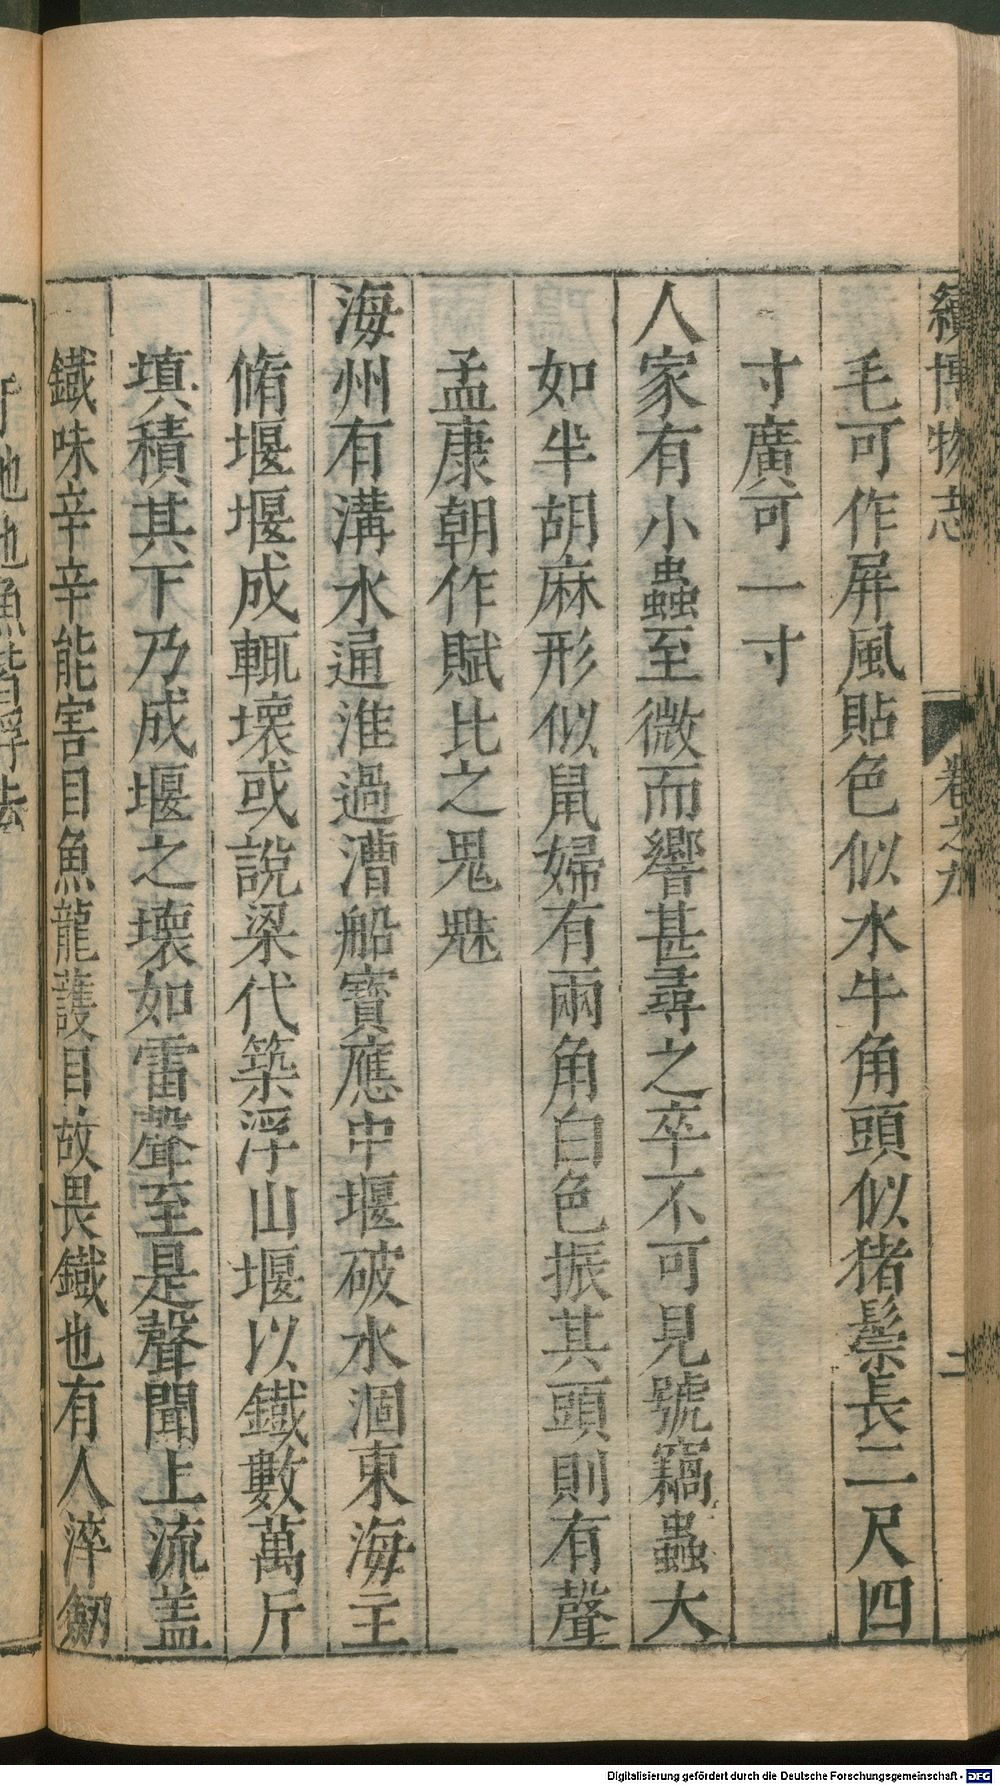 續博物志 卷之九 二
毛可作屏風貼色似水牛角頭似猪鬃長二尺四
寸廣可一寸
人家有小蟲至微而響甚尋之卒不可見號竊蟲大
如半胡麻形似鼠婦有兩角白色振其頭則有聲
孟康朝作賦比之鬼魅
海州有溝水通淮過漕船寶應中堰破水涸東海主
脩堰堰成輒壞或說梁代築浮山堰以鐵數萬斤
填積其下乃成堰之壞如雷聲至是聲聞上流盖
鐵味辛辛能害目魚龍護目故畏鐵也有人淬劒
Digitalisierung gefördert durch die Deutsche Forschungsgemeinschaft - DFG